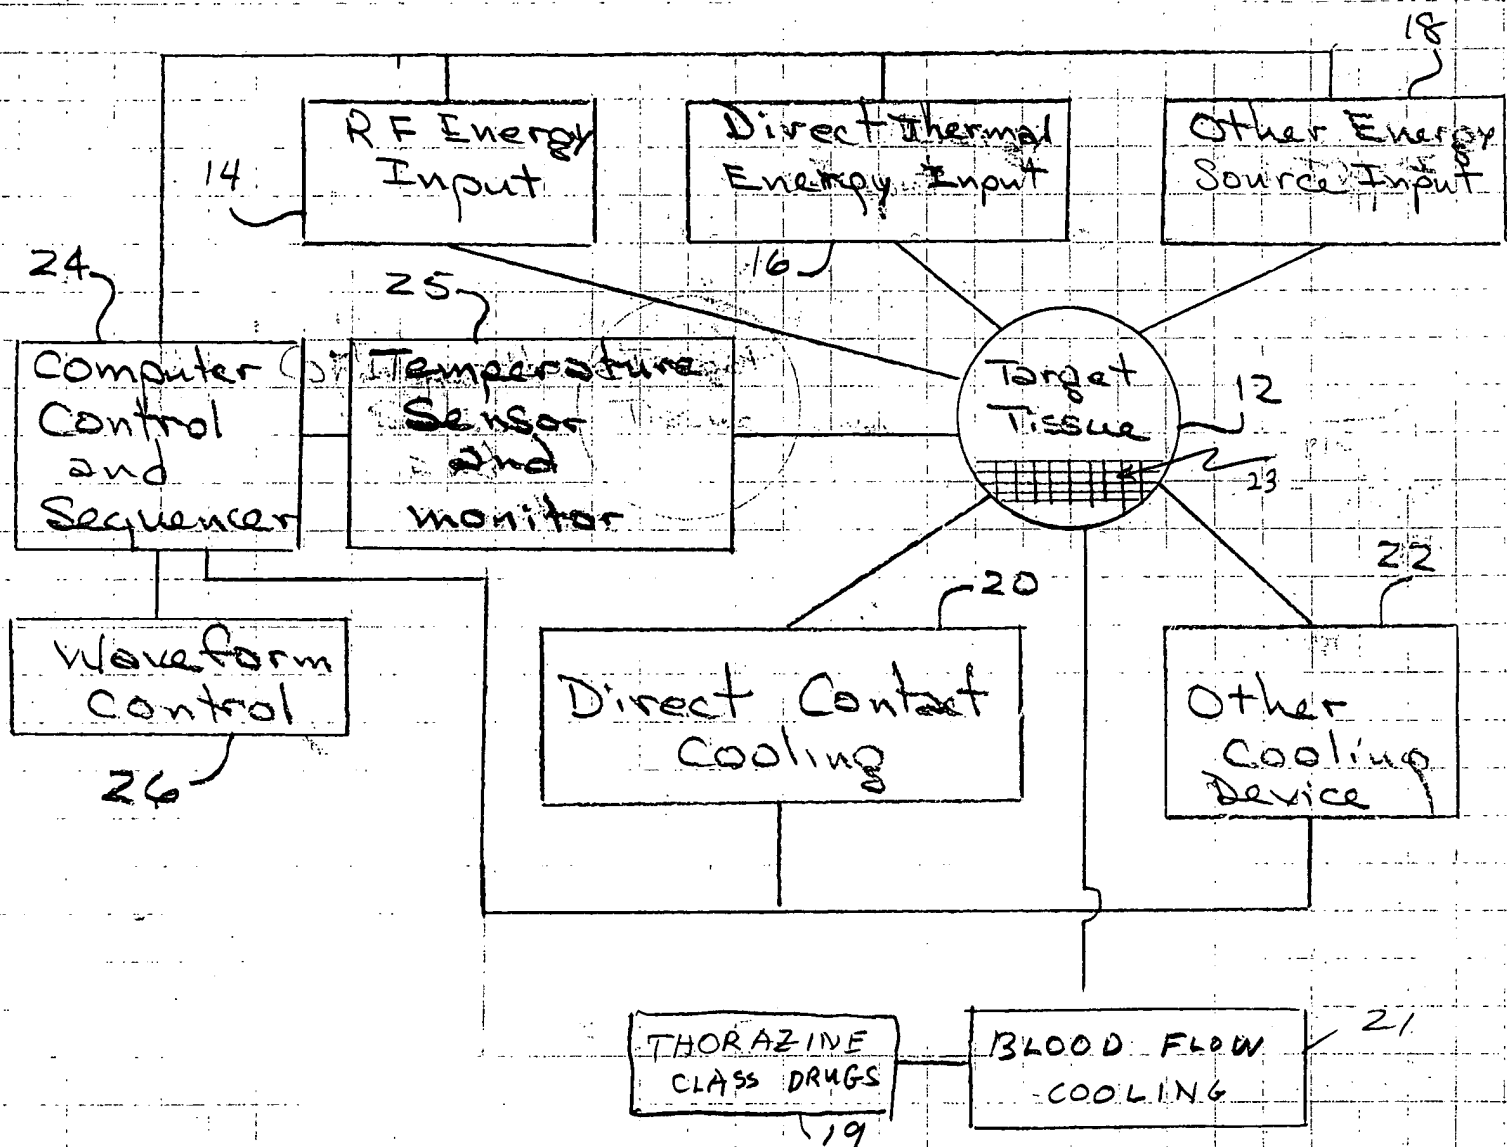 18
RF Energy
Input
14
Direct Thermal
Energy Input
16
Other Energy
Source Input
24
25
Computer
Control
and
Sequencer
Temperature
Sensor
and
monitor
Target
Tissue
12
23
20
22
Waveform
Control
26
Direct Contact
Cooling
Other
Cooling
Device
THORAZINE
CLASS DRUGS
19
BLOOD FLOW
COOLING
21